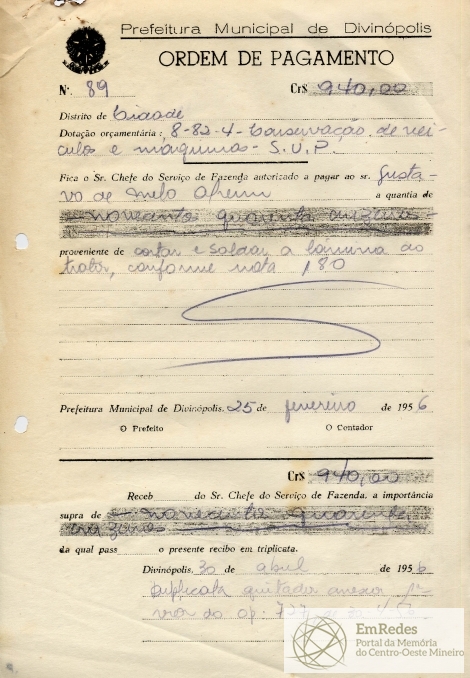 Prefeitura Municipal de Divinópolis
ORDEM DE PAGAMENTO
N.º 89 Cr$ 940,00
Distrito de Cidade
Dotação orçamentária: 8-82-4-Conservação de veí-
culos e máquinas - S.V.P.
Fica o Sr. Chefe do Serviço de Fazenda autorizado a pagar ao sr. Gusta-
vo de Melo a quantia de
novecentos quarenta cruzeiros
proveniente de cortar e soldar a lamina do
trator, conforme nota 180
Prefeitura Municipal de Divinópolis, 25 de fevereiro de 1956
O Prefeito O Contador
Cr$ 940,00
Receb do Sr. Chefe do Serviço de Fazenda, a importância
supra de novecentos quarenta
cruzeiros
da qual pass o presente recibo em triplicata.
Divinópolis, 30 de abril de 1956
duplicata quitada anexa
op.
EmRedes
Portal da Memória
do Centro-Oeste Mineiro